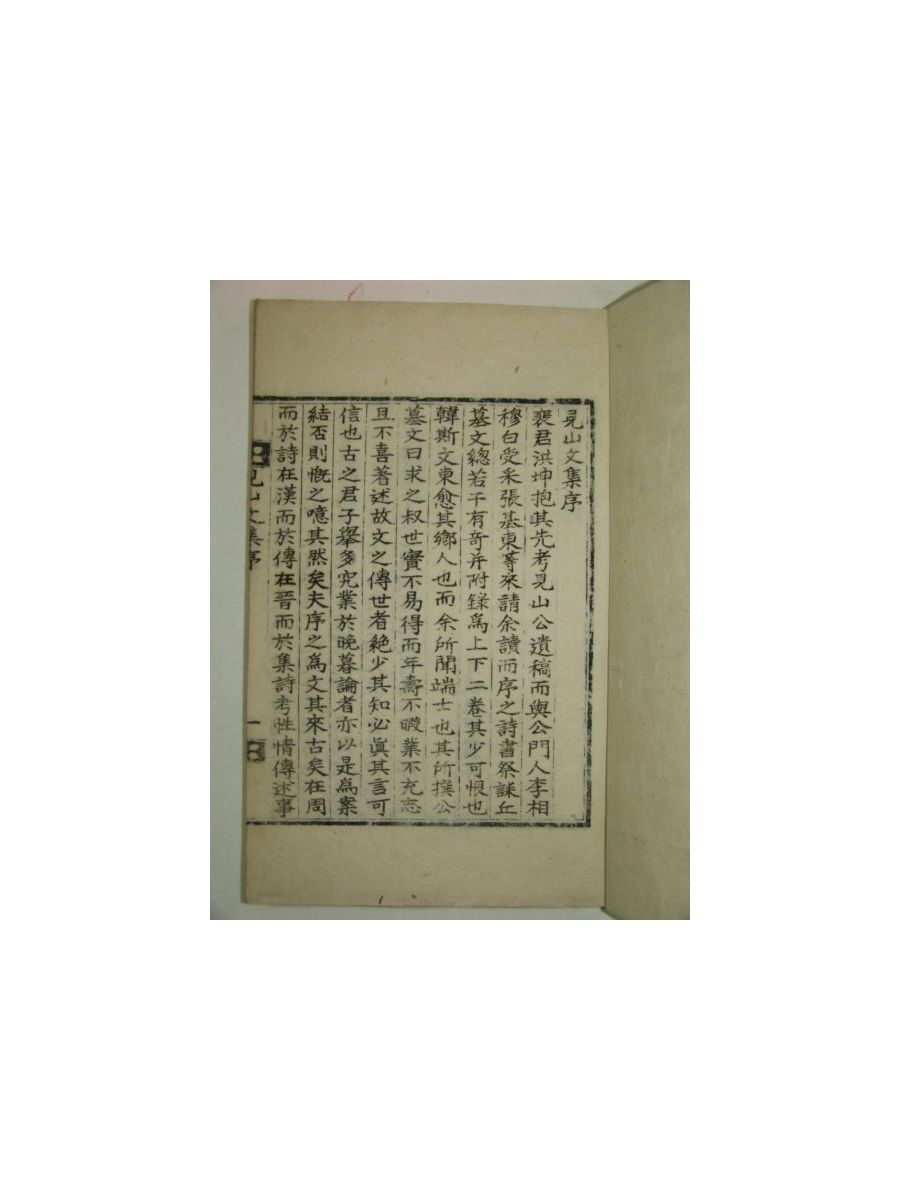 見山文集序
裴君洪坤抱其先考見山公遺稿而與公門人李相
穆白受采張基東等來請余讀而序之詩書祭誄丘
墓文總若干有奇并附錄爲上下二卷其少可恨也
韓斯文東愈其鄉人也而余所聞端士也其所撰公
墓文曰求之叔世實不易得而年壽不暇業不充志
且不喜著述故文之傳世者絶少其知必眞其言可
信也古之君子擧多究業於晚暮論者亦以是爲案
結否則慨之噫其然矣夫序之爲文其來古矣在周
而於詩在漢而於傳在晉而於集詩考性情傳述事
見山文集序
一